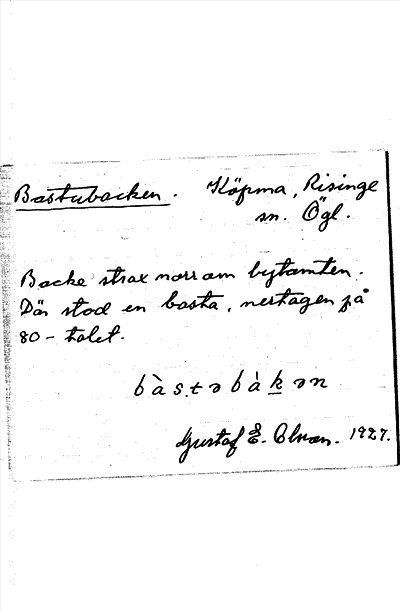 Bastubacken. Köpma, Risinge
sn. Ögl.
Backe strax norr om bytomten.
Där stod en basta, nertagen på
80-talet.
bàstəbàkən
Gustaf E. 1927.